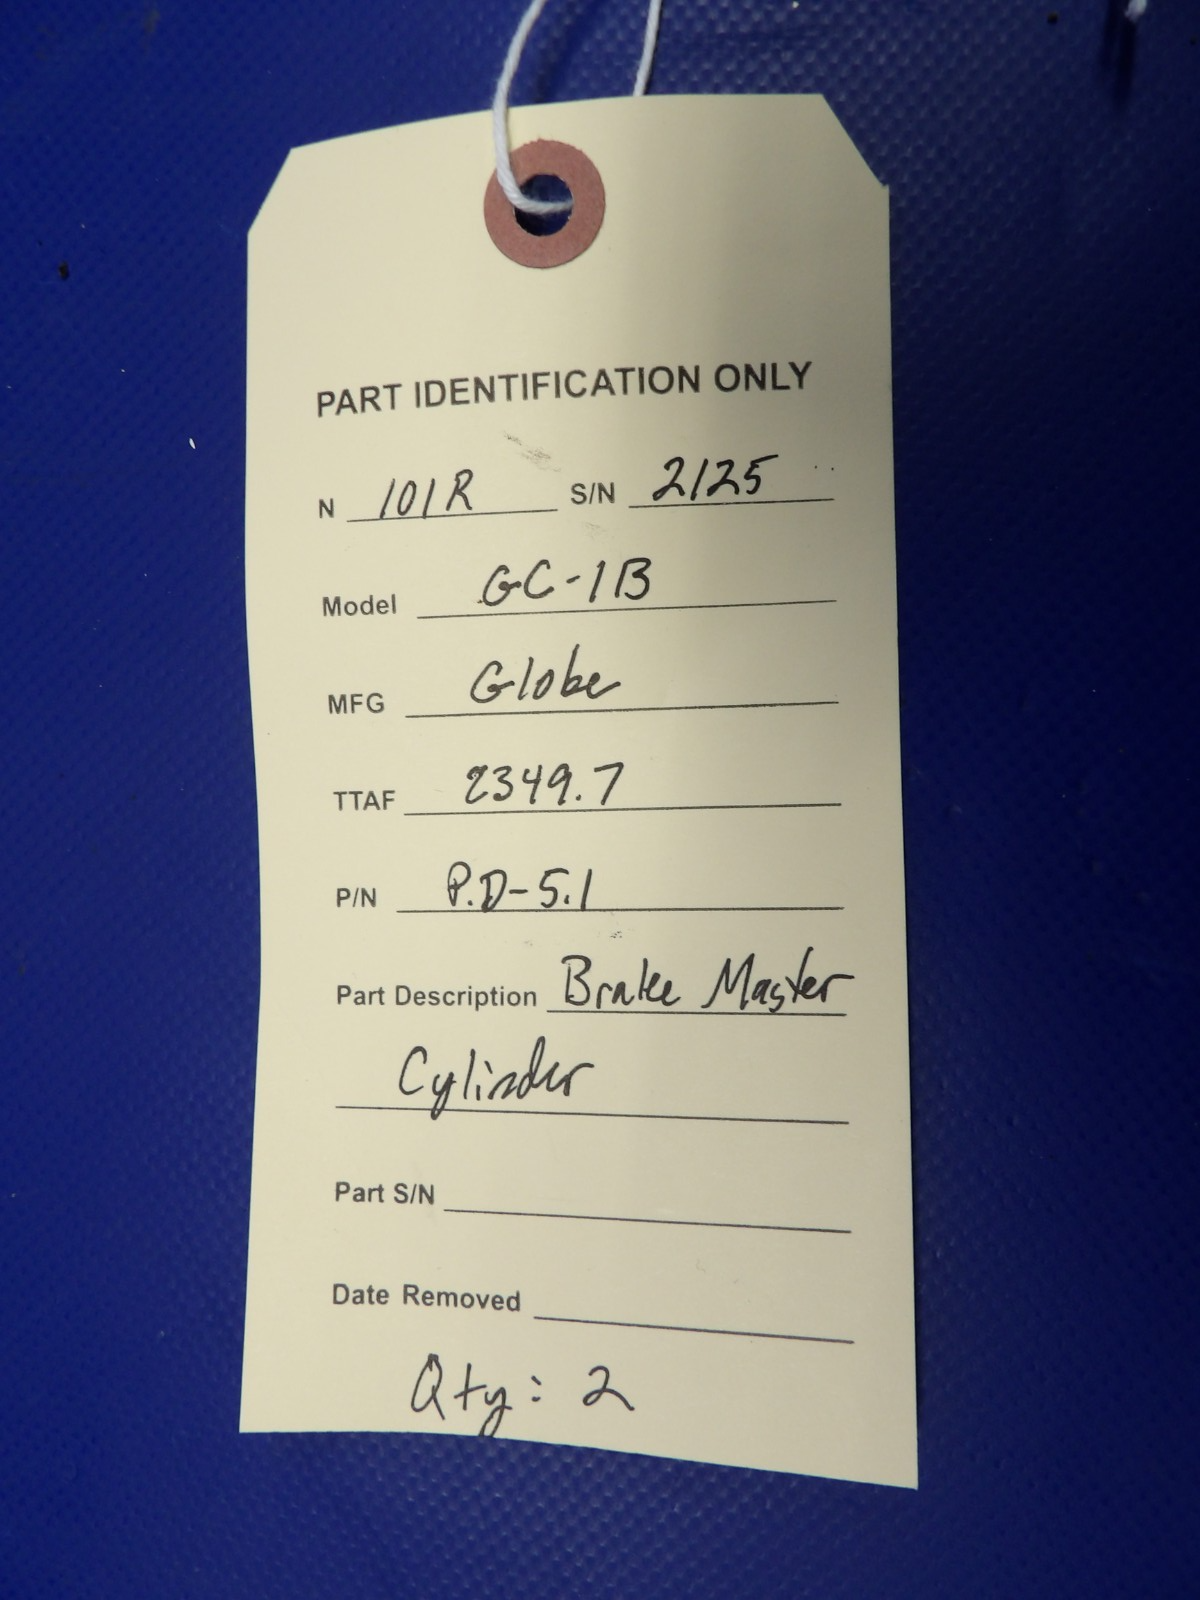 PART IDENTIFICATION ONLY
N 101R S/N 2125
Model GC-1B
MFG Globe
TTAF 2349.7
P/N P.D-5.1
Part Description Brake Master
Cylinder
Part S/N
Date Removed
Qty: 2